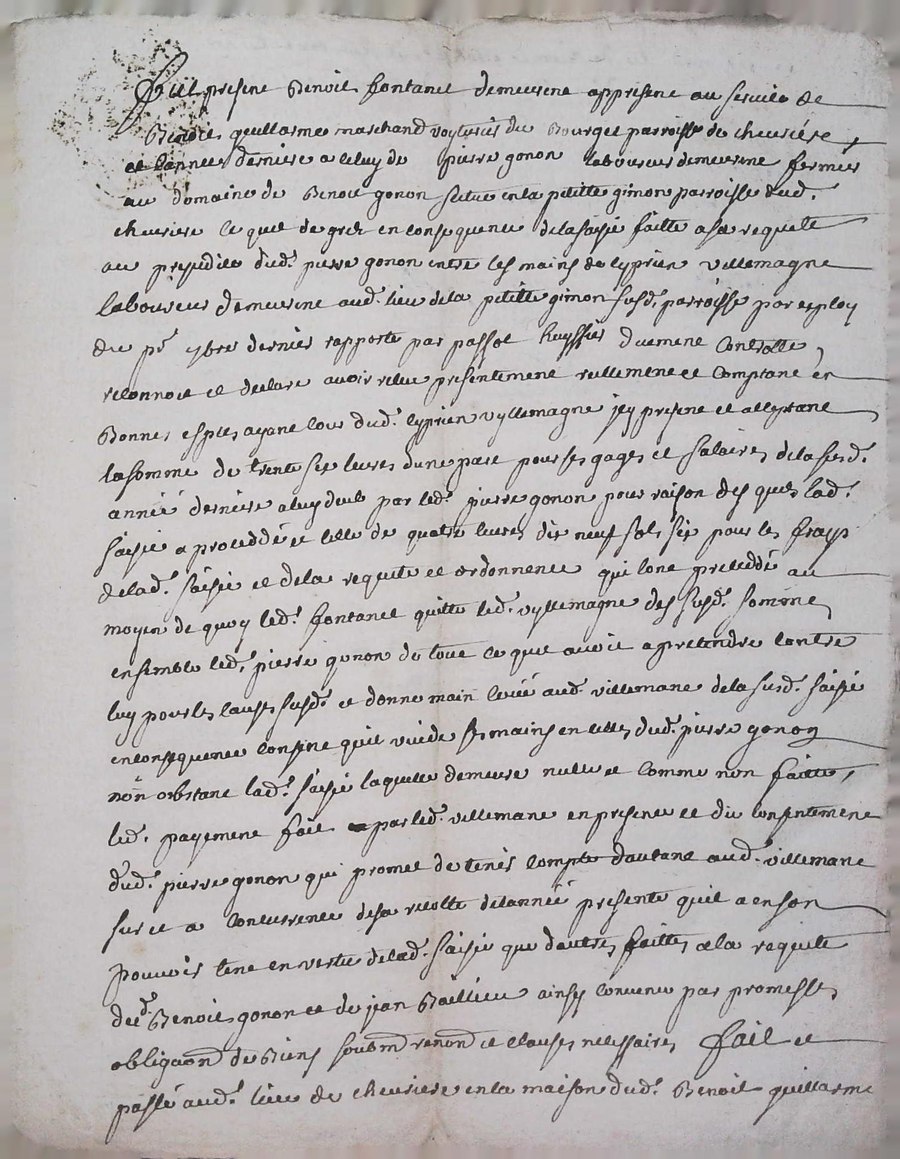 fut present Benoit fontanel demeurent appresent au service de
Benoit guillarme marchand voyturier du Bourget parroisse de chevriere
et Lannee derniere a celuy de pierre gonon laboureur demeurent fermier
au domaine de Benoit gonon scitue en la petitte gimon parroisse dud.
chevriere le quel de gré en consequence de la saisie faitte a sa requete
au prejudice dud. pierre gonon entre les mains de cyprien villemagne
laboureur demeurent aud. lieu de la petitte gimon susd. parroisse par exploy
du pr. 9bre dernier rapporté par passot huyssier duement controllé,
reconnoit et declare avoir receu presentement reellement et comptant en
Bonnes especes ayant cour dud. cyprien vyllemagne jcy present et acceptant
la somme de trente six livres dune part pour ses gages et salaires de la susd.
année derniere a luy deub par led. pierre gonon pour raison des quels lad.
saisie a proceddé et celle de quatre livres dix neuf sols six pour les frays
de lad. saisie et de la requete et ordonnence qui lont preceddé au
moyen de quoy led. fontanel quitte led. vyllemagne des susd. sommes
ensemble led. pierre gonon de tout ce que avoit a pretendre contre
luy pour les causes susd. et donne main levée aud. villemane de la susd. saisie
en consequence consent quil vuide ses mains en celles dud. pierre gonon
non obstant lad. saisie laquelle demeure nulle et comme non faitte,
led. payement fait par led. villemane en presence et du consentement
dud. pierre gonon qui promet de tenir compte dautant aud. villemane
sur et a concurrence de sa recolte de lannée presente quil a en son
pouvoir tent en vertu de lad. saisie que dautres faittes a la requete
dud. Benoit gonon et de jean Baillieu ainsy convenu par promesses
obligaôn de Biens soubmôn renonôn et clauses necessaires fait et
passé aud. lieu de chevriere en la maison dud. Benoit guillarme